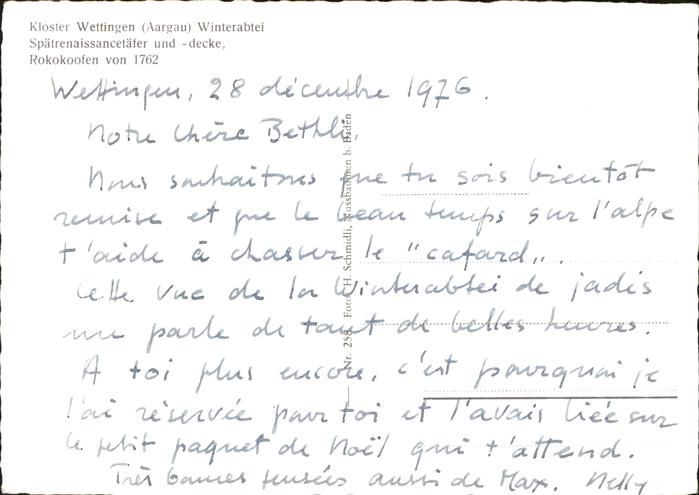 Kloster Wettingen (Aargau) Winterabtei
Spätrenaissancetäfer und -decke,
Rokokoofen von 1762
Wettingen, 28 décembre 1976.
Notre chère Bethli,
Nous souhaitons que tu sois bientôt
remise et que le beau temps sur l'alpe
t'aide à chasser le "cafard".
Cette vue de la Winterabtei de jadis
me parle de tant de belles heures.
A toi plus encore, c'est pourquoi je
l'ai réservée pour toi et l'avais liée sur
le petit paquet de Noël qui t'attend.
Très bonnes pensées aussi de Max. Nelly
Nr. 258 Foto: H. Schmidli, Nussbaumen b. Baden